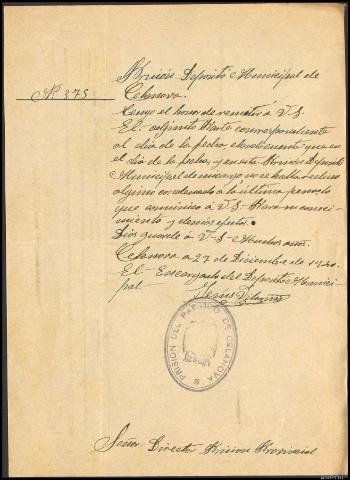 Prisión Depósito Municipal de
Celanova.
Nº 375
Tengo el honor de remitir á V.S.
El adjunto Parte correspondiente
al dia de la fecha, espediente que en
el dia de la fecha, y en esta Prisión Depósito
Municipal de mi cargo, no se halla recluso
alguno condenado á la última pena, lo
que comunico á V.S. Para su conoci-
miento y demás efectos.
Dios guarde á V.S. Muchos años.
Celanova a 27 de Diciembre de 1940.
El Encargado del Depósito Munici-
pal
Jesús
PRISION DEL PARTIDO DE CELANOVA
Señor Director Prisión Provincial